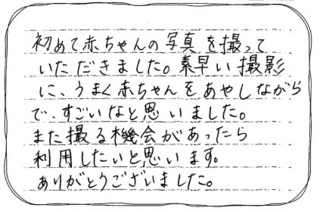 初めて赤ちゃんの写真を撮って
いただきました。素早い撮影
に、うまく赤ちゃんをあやしながら
で、すごいなと思いました。
また撮る機会があったら
利用したいと思います。
ありがとうございました。